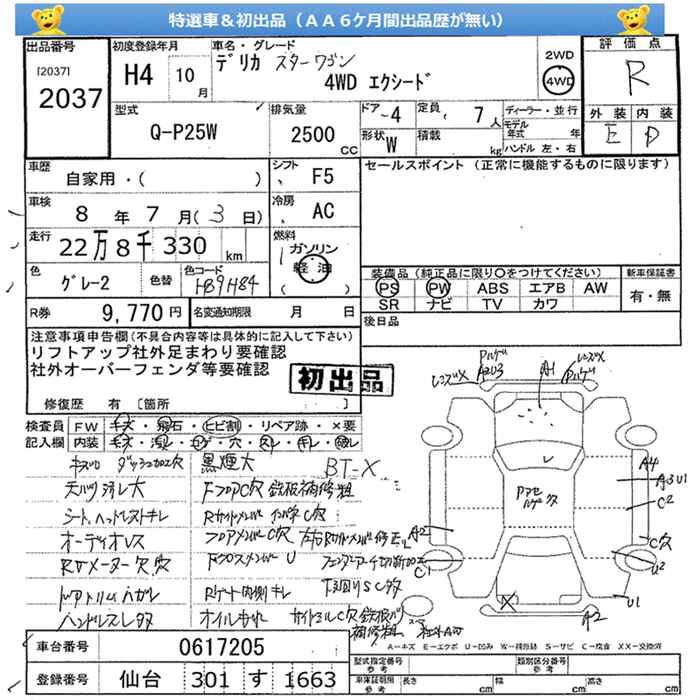 特選車&初出品(AA6ケ月間出品歴が無い)
出品番号
[2037]
2037
初度登録年月
H4 10月
車名・グレード
デリカ スターワゴン
4WD エクシード
2WD
4WD
評価点
R
外装 内装
E D
型式
Q-P25W
排気量
2500 CC
ドア 4
定員 7人
形状 W
積載 kg
ディーラー・並行
モデル年式 年
ハンドル 左・右
車歴
自家用・( )
シフト F5
セールスポイント(正常に機能するものに限ります)
車検
8年7月(3日)
冷房 AC
走行
22万8千330km
燃料
ガソリン
軽油
( )
色
グレー2
色替
色コード
H89H84
装備品(純正品に限り○をつけてください)
新車保証書
PS PW ABS エアB AW
SR ナビ TV カワ
有・無
R券 9,770円
名変通知期限 月 日
後日品
注意事項申告欄(不具合内容等は具体的に記入して下さい)
リフトアップ社外足まわり要確認
社外オーバーフェンダ等要確認
初出品
修復歴 有 [箇所 ]
検査員記入欄
FW キズ・飛石・ヒビ割・リペア跡・×要
内装 キズ・汚レ・コゲ・穴・スレ・キレ・破レ
キズ大 ダッシュ加工穴
黒煙大
BT-X
天バリ汚レ大
FフロアC穴 鉄板補修粗
シート、ヘッドレストキレ
オーディオレス
フロアメンバC穴
Rrヒーター欠穴
FクロスメンバU
ドアトリムハガレ
Rゲート内側キレ
下回りSC多
ハンドルスレ多
オイルもれ
サイドシルC穴鉄板バリ
補修粗
レンズX
A1
レンズX
A4
A3U1
C2
C穴
A2
C1
U2
U1
A2
車台番号 0617205
登録番号 仙台 301 す 1663
A-キズ E-エクボ U-凹み W-補修跡 S-サビ C-腐食 XX-交換済
型式指定番号
参考
類別区分番号
参考
車庫証明用
参考
長さ cm
幅 cm
高さ cm